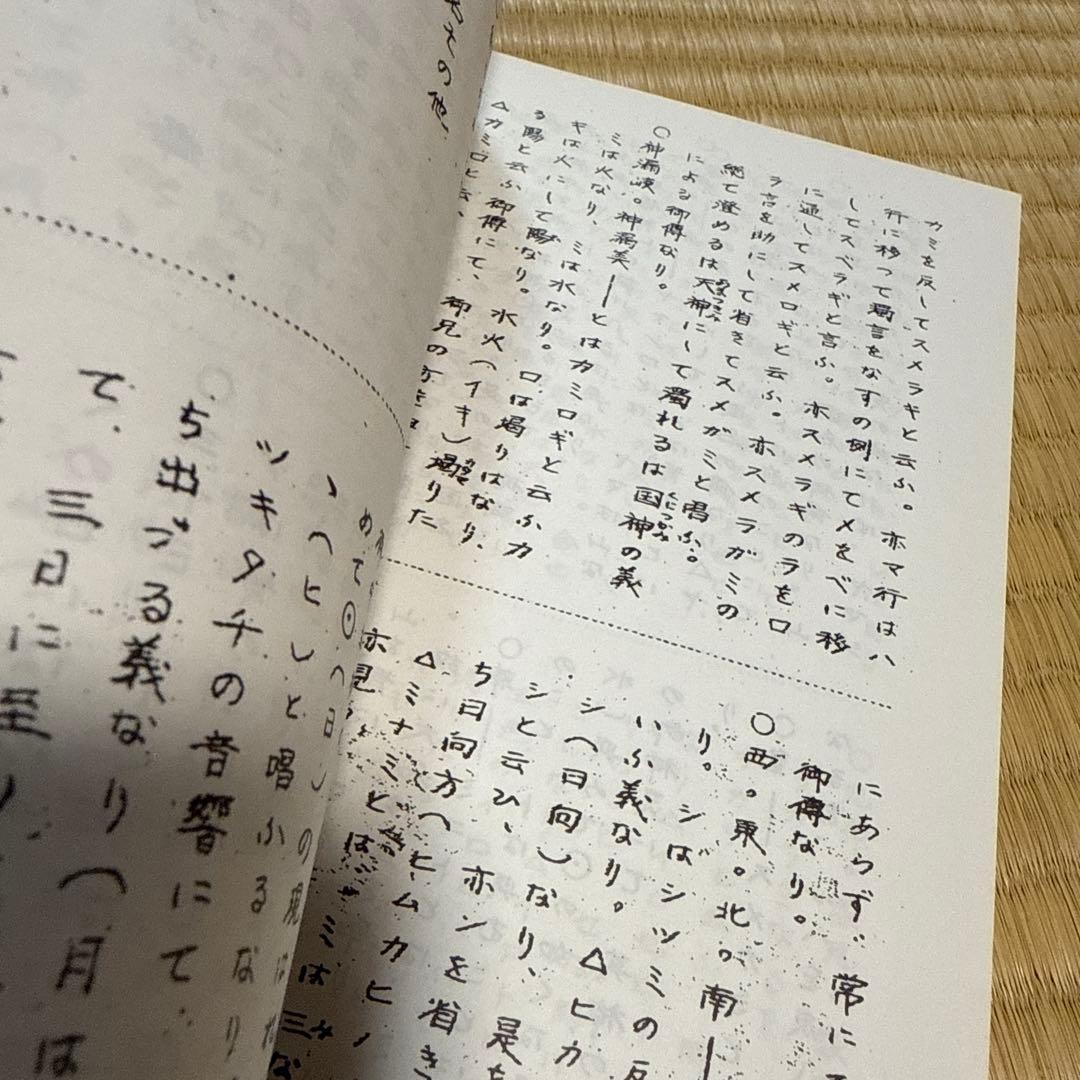 カミを反してスメラギと云ふ。亦マ行はハ
行に移つて濁言をなすの例にてメをベに移
してスベラギと言ふ。亦スメラギのラをロ
に通してスメロギと云ふ。亦スメラガミの
ラ言を助にして省きてスメガミと唱ふ。
総て澄めるは天神にして濁れるは国神の義
による御傳なり。
○神漏岐。神漏美――とはカミロギと云ふカ
ミは火なり、ミは水なり。ロは搨りはなり、
キは火にして陽なり。水火(イキ)搨りた
る陽と云ふ御傳にて、御兄の
△カミロと云、
にあらず。常に
御傳なり。
○西。東。北。南―
り。シはシツミの反
いふ義なり。△ヒカ
シ(日向)なり、是を
シと云ひ、亦ンを省き
ち日向方(ヒムカヒノ
△ミナミとは、ミは三な
亦見
あその他、
めて⊙(日)の現は
、(ヒ)と唱ふるなり
ツキタチの音響にて
ち出づる義なり(月は
て、三日に至り